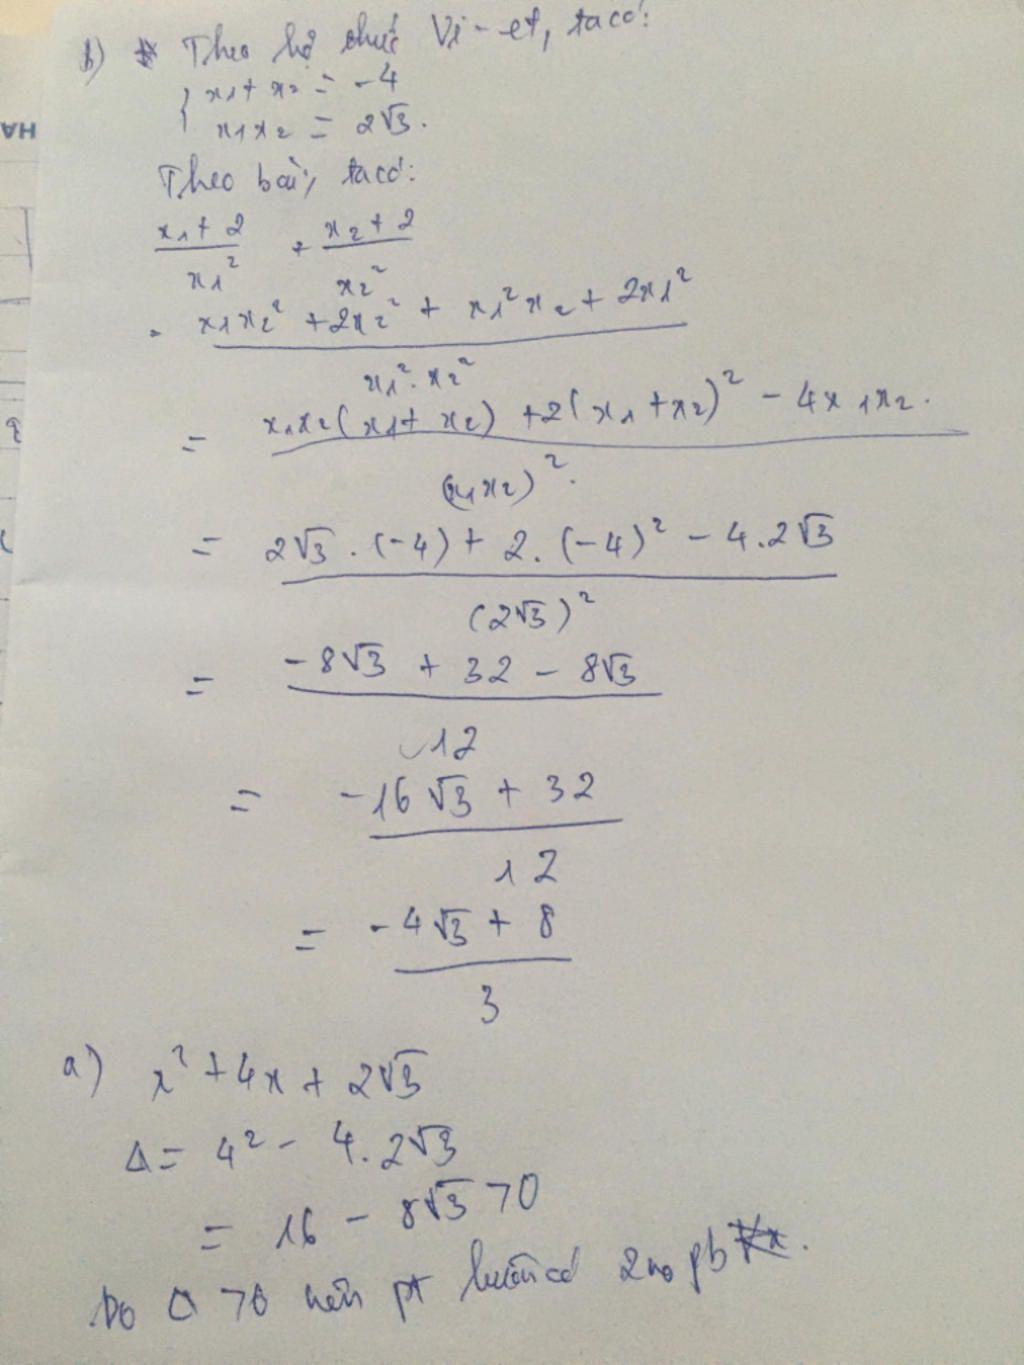 b) Theo hệ thức Vi-et, ta có:
x₁ + x₂ = -4
x₁x₂ = 2√3.
Theo bài, ta có:
(x₁ + 2)/x₁² + (x₂ + 2)/x₂²
= (x₁x₂² + 2x₂² + x₁²x₂ + 2x₁²)/(x₁².x₂²)
= (x₁x₂(x₁ + x₂) + 2(x₁ + x₂)² - 4x₁x₂.)/(x₁x₂)².
= (2√3 . (-4) + 2. (-4)² - 4.2√3)/(2√3)²
= (-8√3 + 32 - 8√3)/12
= (-16√3 + 32)/12
= (-4√3 + 8)/3
a) x² + 4x + 2√3
Δ = 4² - 4.2√3
= 16 - 8√3 > 0
Do Δ > 0 nên pt luôn có 2 no pb.
HA